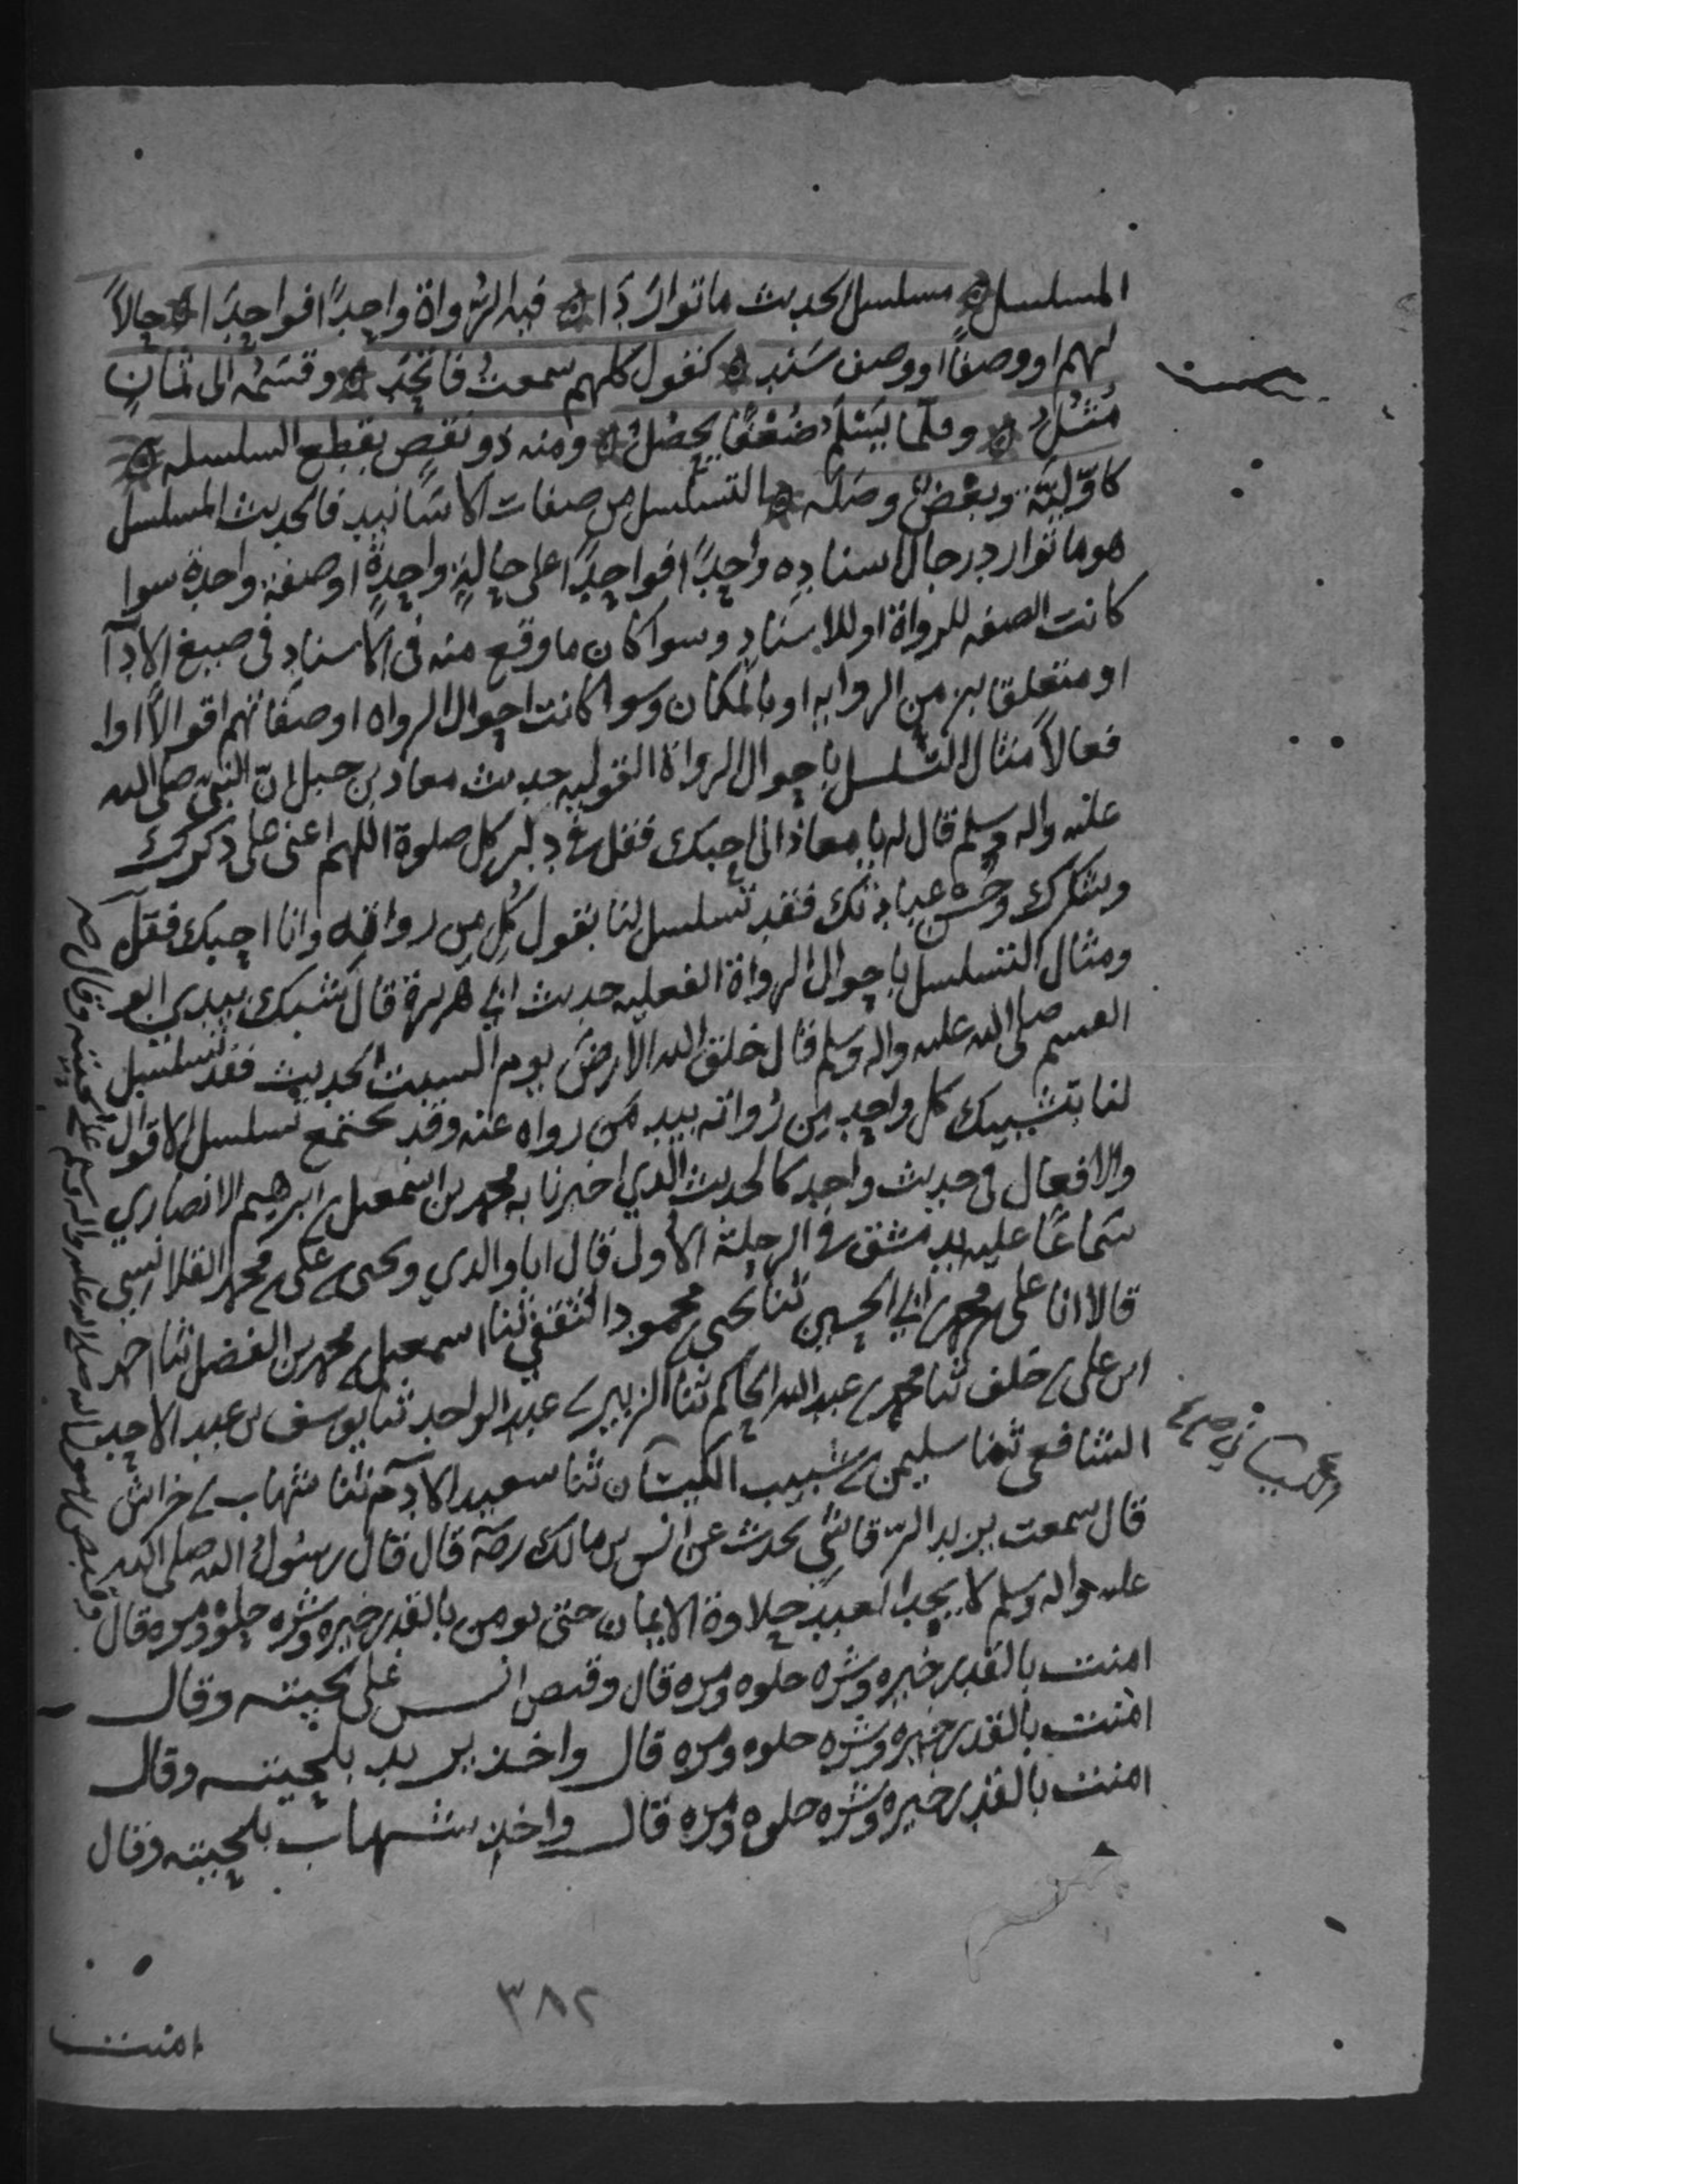 المسلسل ه مسلسل الحديث ما توارَدَا ه فيه الرُّواة واحِدًا فواحِدَا ه حالاً
لهم او وصفًا او وصف سَنَدِ ه كقول كلهم سمعتُ فاتَّحَد ه وقَسَمُه الى ثمانٍ
مُثُلُ ه وقلّما يَسْلَمُ ضُعْفًا يحصُل ه ومنه ذو نقصٍ بقطع السلسله ه
كاوّليّة وبعضٌ وصَلَه ه التسلسل من صفات الاسَانيد فالحديث المسلسل
هو ما توارد رجال اسنادِه واحِدًا فواحِدًا على حالةٍ واحِدةٍ او صفة واحدة سوا
كانت الصفه للرواة او للاسنادِ وسوا كان ما وقع منه فى الاسنادِ فى صيغ الادآ
او متعلقا بزمن الروايه او بالمكان وسوا كانت احوال الرواه او صفاتهم اقوالاً اوا
فعالاً مثال التسلسل باحوال الرواة القوليه حديث معاذ بن جبل انّ النبى صلى الله
عليه واله وسلم قال له يا معاذ انى احبك فقل فى دبر كل صلوة اللهم اعنى على ذكرك
وشكرك وحُسن عبادتك فقد تسلسل لنا بقول كُلٍ مِن رواته وانا احبك فقل
ومثال التسلسل باحوال الرواة الفعليه حديث ابي هريرة قال شبك بيدي ابو
القسم صلى الله عليه واله وسلم قال خلق الله الارضَ يوم السبت الحديث فقد تسلسل
لنا بتشبيك كل واحِدٍ مِن رُواته بيد مَن رواه عنه وقد يجتمع تسلسل الاقوال
والافعال فى حديث واحِد كالحديث الذي اخبرنا به محمد بن اسمعيل بن ابرهيم الانصاري
سَمَاعًا عليه بدمشق فى الرحلة الاولى قال انا والدي ويحيى بن على بن محمد القلانسي
قالا انا على بن محمد بن ابي الحسين ثنا يحيى بن محمود الثقفي ثنا اسمعيل بن محمد بن الفضل ثنا احمد
ابن على بن خلف ثنا محمد بن عبد الله الحاكم ثنا الزبير بن عبد الواحد ثنا يوسف بن عبد الاحد
الشافعى ثنا سليمن بن شبيب الكيسان ثنا سعيد الادم ثنا شهاب بن خراش
قال سمعت يزيد الرّقاشي يحدث عن انس بن مالك رضه قال قال رسُول الله صلى الله
عليه واله وسلم لا يجد العبد حلاوة الايمان حتى يومن بالقدر خيره وشره حلوه ومره قال
وقبض رسول الله صلى الله عليه واله وسلم على لحيته وقال
امنت بالقدر خيره وشره حلوه ومره قال وقبض انس على لحيته وقال
امنت بالقدر خيره وشره حلوه ومره قال واخذ يزيد بلحيته وقال
امنت بالقدر خيره وشره حلوه ومره قال واخذ شهاب بلحيته وقال
٣٨٢
امنت